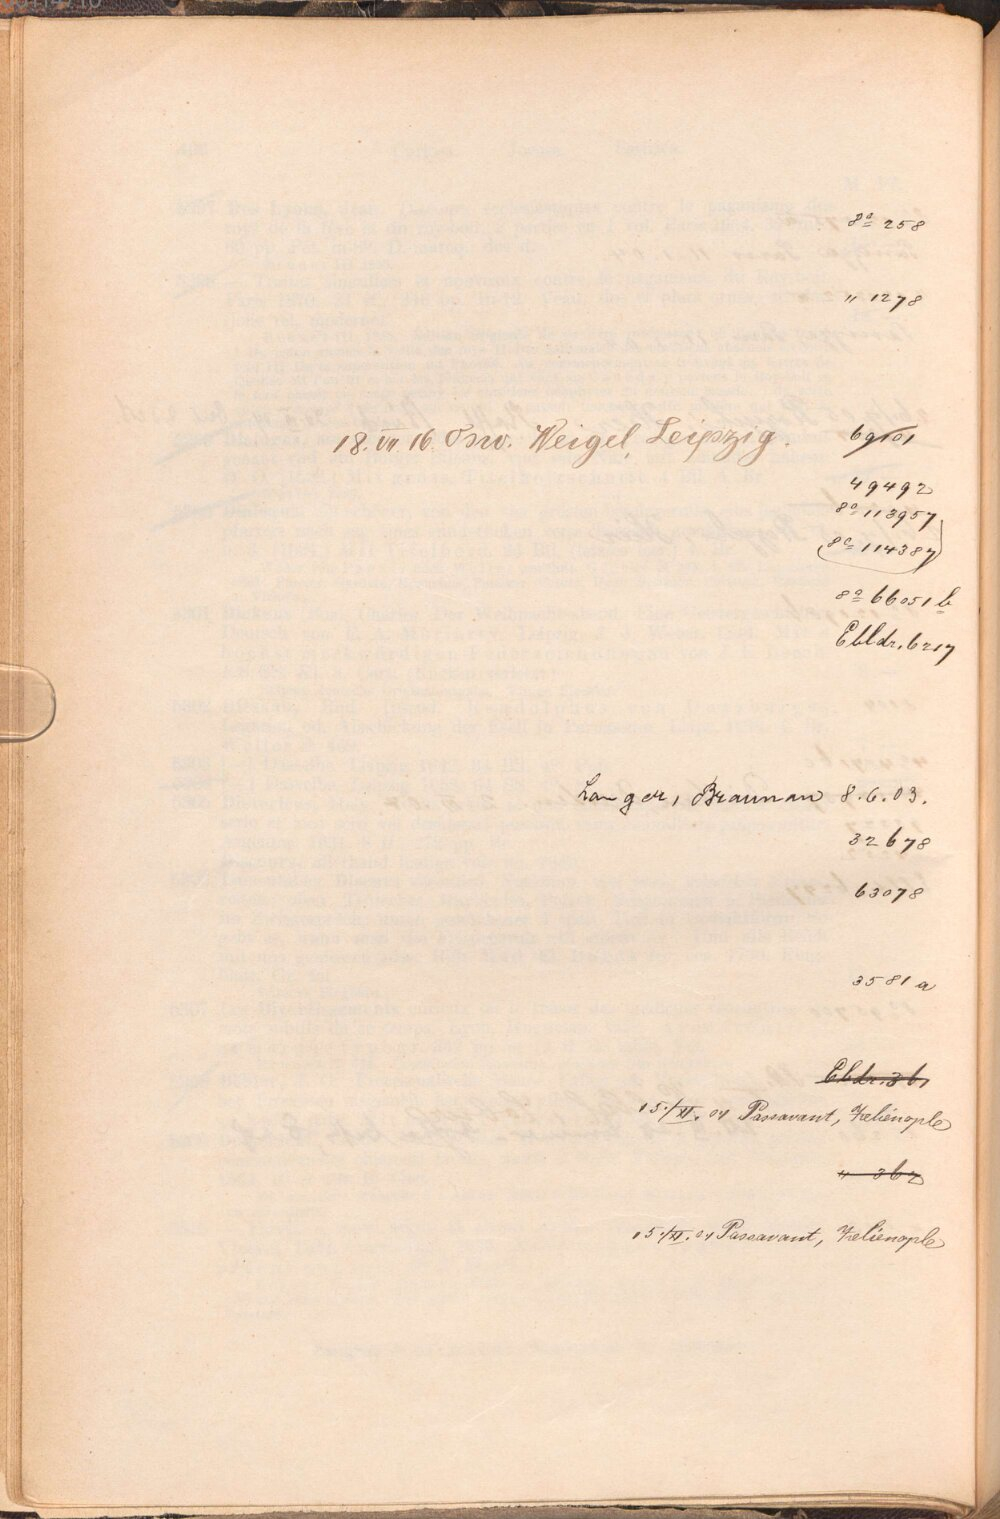 8º 258
" 1278
18. VII 16. Osw. Weigel, Leipzig. 69101
49492
8º 113957
(8º 114387)
8º 66051 b
Ebldr. 6217
Langer, Braunau 8.6.03.
32678
63078
3581 a
Ebldr. 361
15./XI. 04 Passavant, Zelienople
" 362
15./XI. 04 Passavant, Zelienople